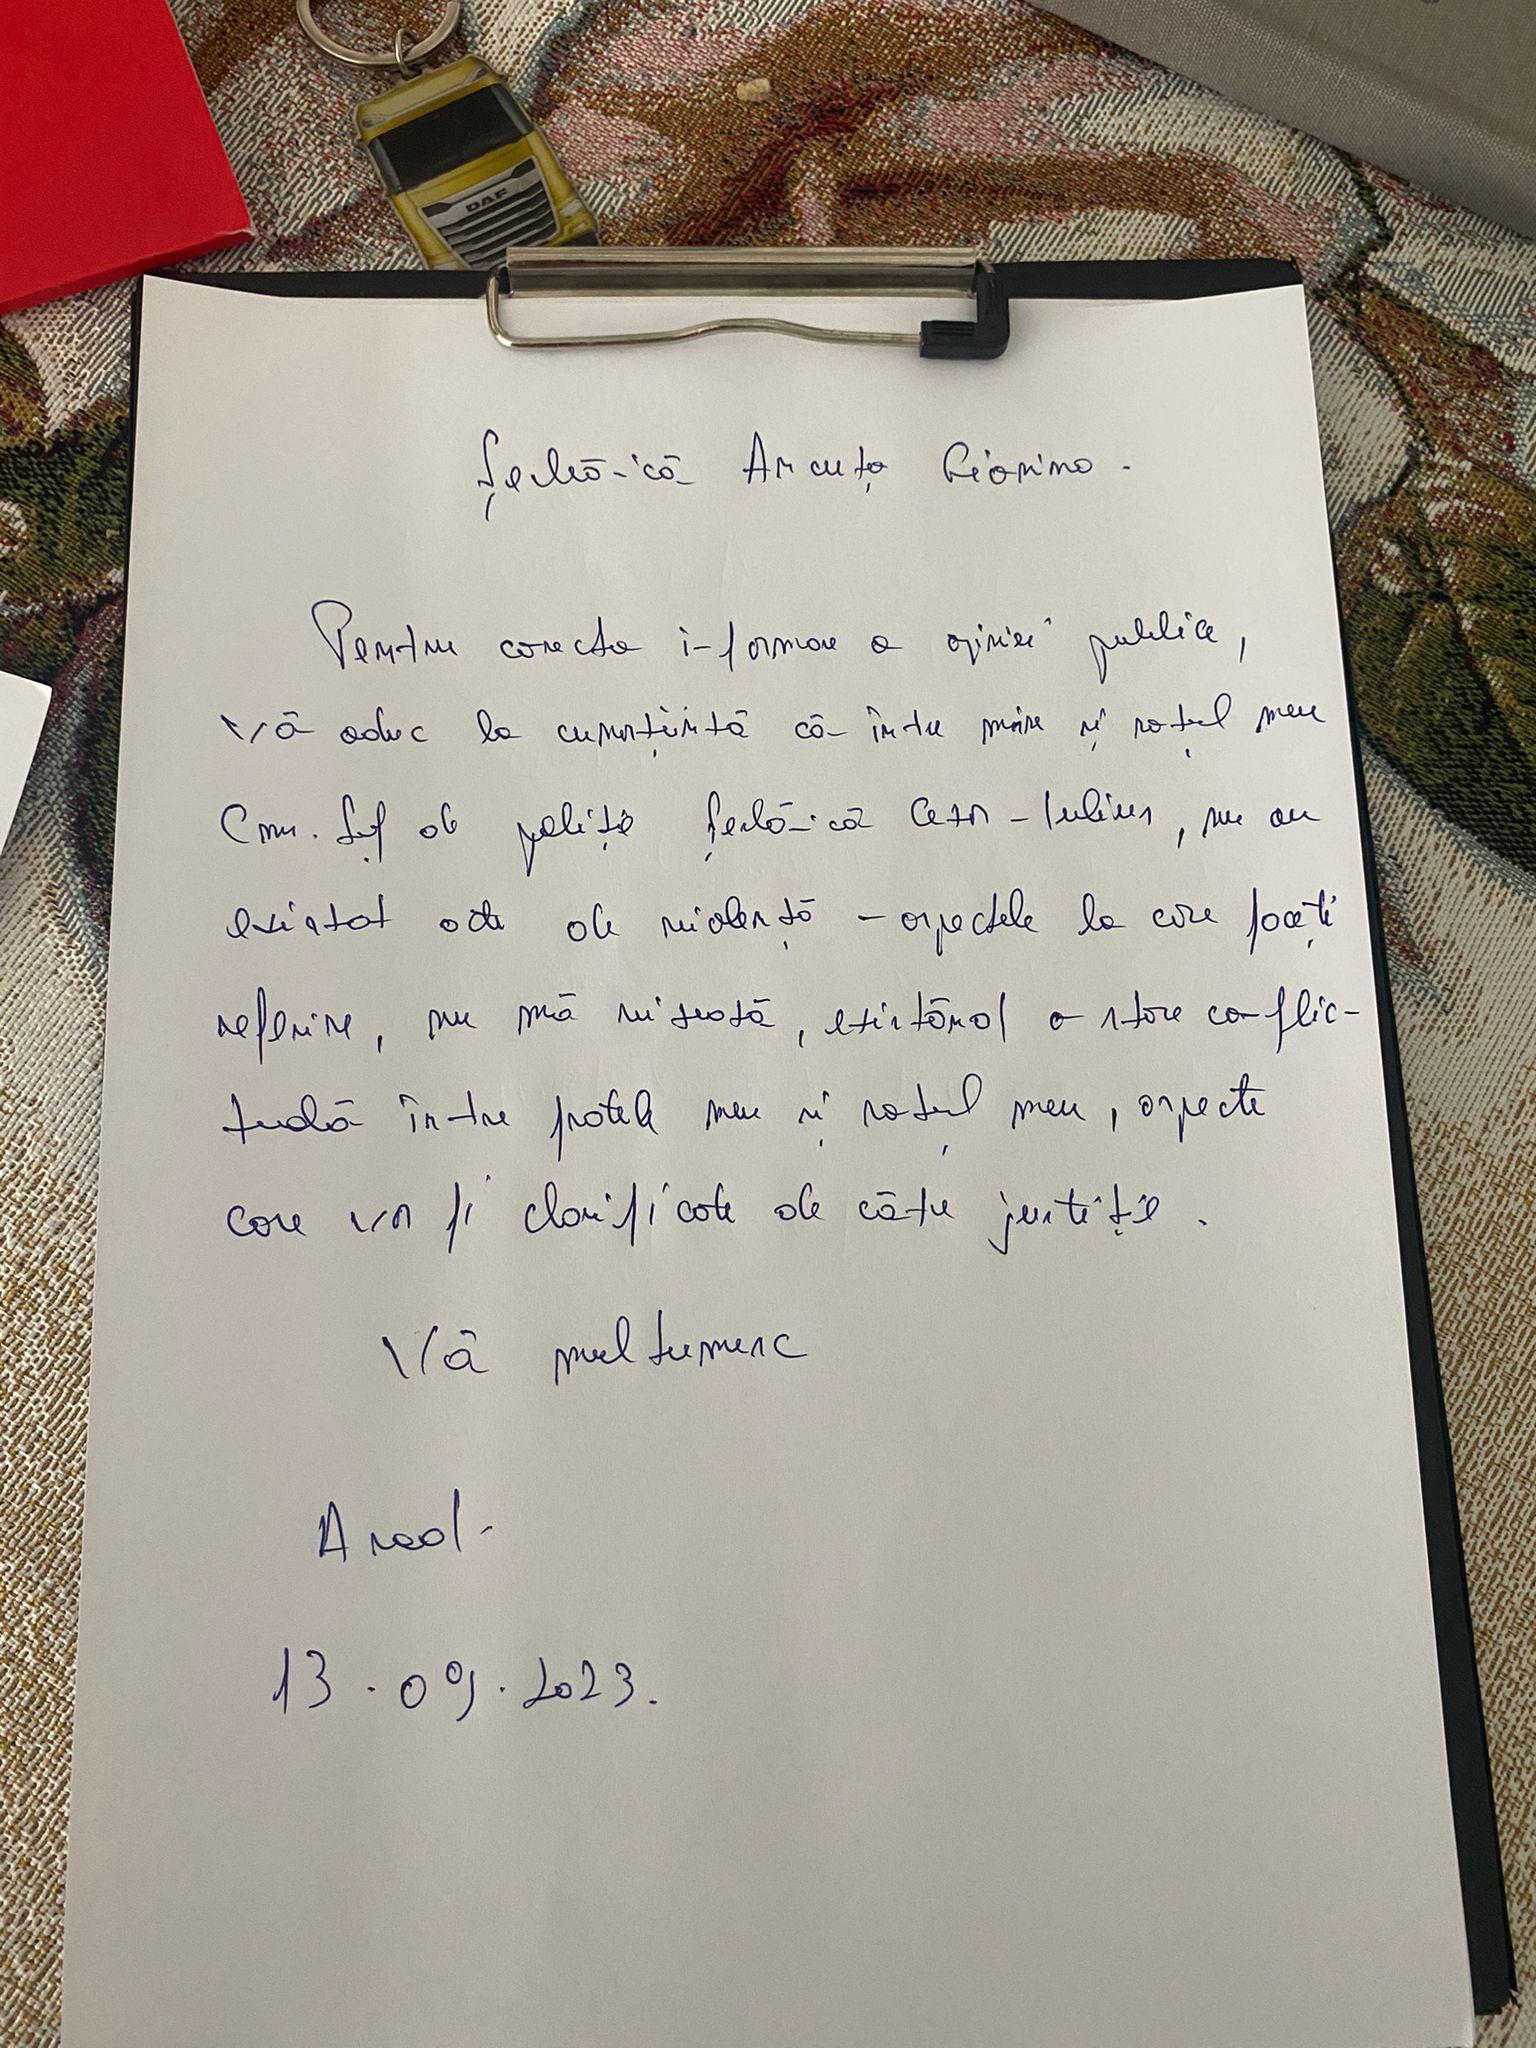 DAF
Șerbănică Ancuța Cionina.
Pentru corecta informare a opiniei publice,
Vă aduc la cunoștință că între mine și soțul meu
Cms. Șef de poliție Șerbănică Cezar-Iulius, nu au
existat acte de violență - aspectele la care faceți
referire, nu mă vizează, existând o stare conflic-
tuală între fratele meu și soțul meu, aspecte
care vor fi clarificate de către justiție.
Vă mulțumesc
Arad.
13.09.2023.